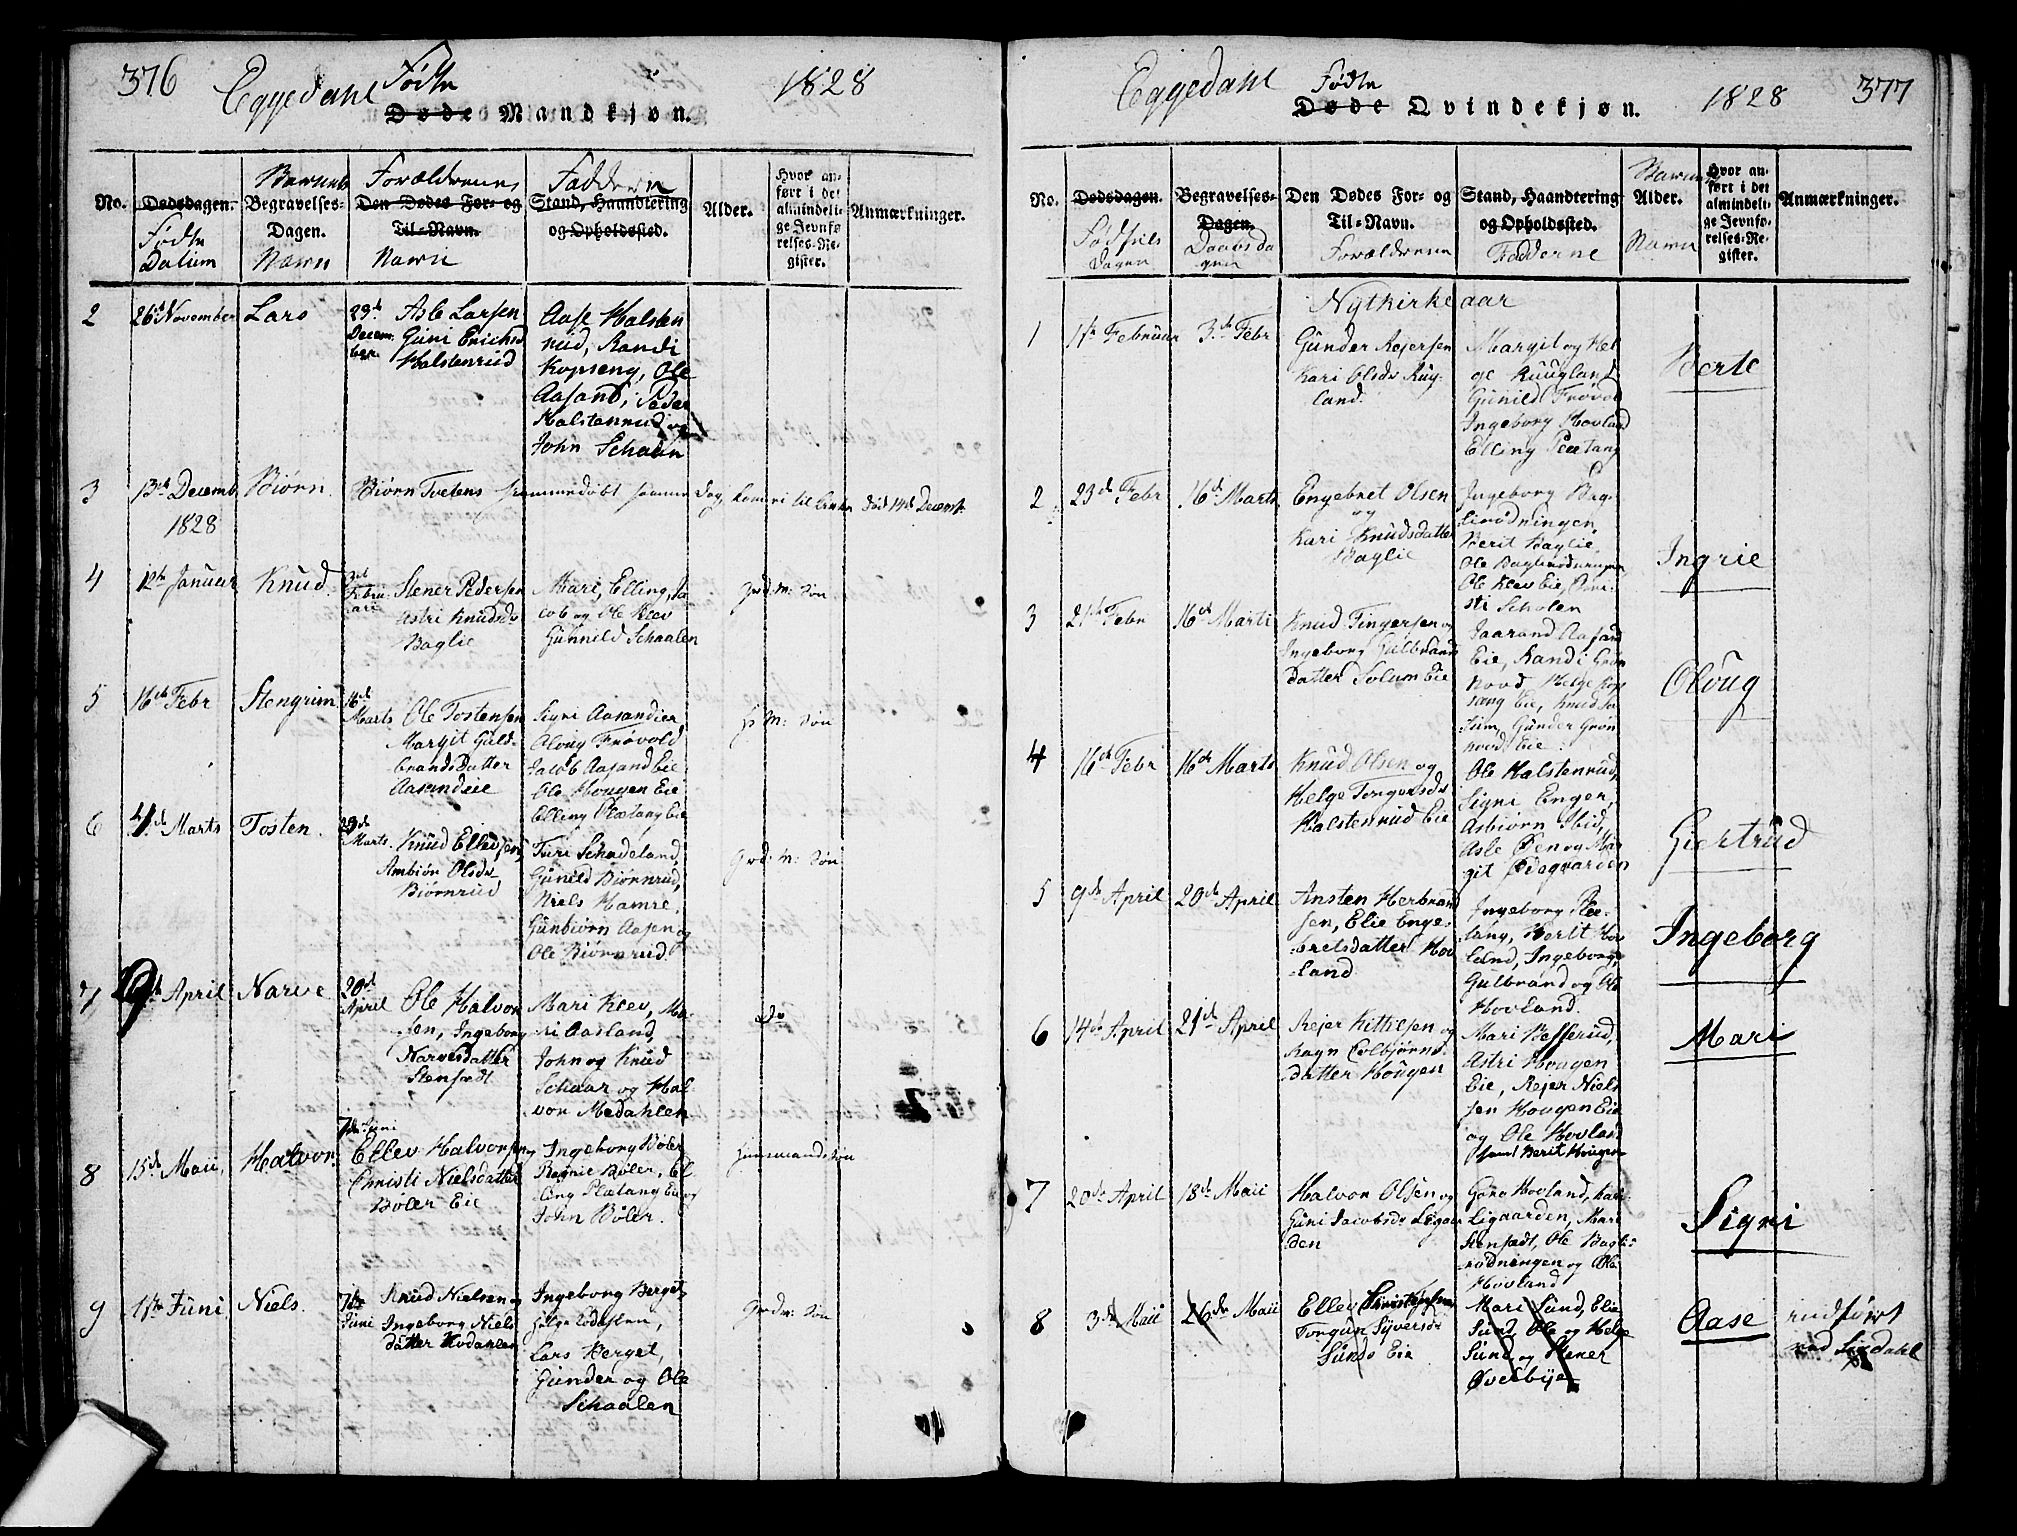 376 Eggedahl Fødte 1828
Døde Mandkjøn.
No.
Dødsdagen.
Fødte
Datum
Barnets
Begravelses-
Dagen.
Navn
Forældrenes
Den Dødes For- og
Til-Navn.
Navn
Faddern
Stand, Haandtering
og Opholdssted.
Alder.
Hvor an-
ført i det
almindeli-
ge Jevnfø-
relses-Re-
gister.
Anmærkninger.
2
26de November
Lars
29de
Decem-
ber
Asle Larsen
Guni Erichsd
Halstenrud
Aase Halsten
rud, Randi
Kopseng, Ole
Aasand, Peder
Halstenrud og
John Schaaln
3
13de Decemb
1828
Biørn
Biørn Tvetens hiemmedøbt samme Dag, til Død 14de Decemb.
4
12te Januar
Knud
3de
Febru-
arii
Stener Pedersen
Astri Knudsdr
Baglie
Mari, Elling, Ja
cob og Ole Klev
Gunnild Schaalen
Grd: M: Søn
5
16de Febr
Stengrim
16de
Marts
Ole Tostensen
Margit Guld-
brandsDatter
Aasandeie
Signi Aasandeie
Oloug Frøvold
Jacob Aasand Eie
Ole Hougen Eie
Elling Plætang Eie
H: M: Søn
6
4de Marts
Tosten.
23de
Marts
Knud Ellevsen
Ambiør Olsdr
Biørnrud
Turi Schadeland,
Gunild Biørnrud,
Niels Hamre,
Gunbiørn Aasen og
Ole Biørnrud
Grd: M: Søn
7
9de April
Narve
20de
April
Ole Halvor
sen, Ingeborg
Narvesdatter
Stensædt
Mari Klev, Ma-
ri Aasland,
John og Knud
Schaar og Hal
vor Medahlen
Do
8
15de Maii,
Halvor.
7de Juni
Ellev Halvorsen
Christi Nielsdatter
Bøler Eie
Ingeborg Bøler
Ragnie Bøler, El
ling Plætang Eie og
John Bøler.
Huusmandssøn
9
1ste Juni
Niels.
7de
Juni
Knud Nielsen og
Ingeborg Niels
datter Hodahlen
Ingeborg Berget,
Helge Lofthen,
Lars Berget,
Gunder og Ole
Schaalen
Grdm: Søn
Eggedahl Fødte 1828 377
Døde Qvindekjøn.
No.
Dødsdagen.
Fødsels
Dagen
Begravelses-
Dagen.
Daabsda
gen
Den Dødes For- og
Til-Navn.
Forældrene
Stand, Haandtering
og Opholdssted.
Fadderne
Barnets
Alder.
Navn
Hvor an-
ført i det
almindeli-
ge Jevnfø-
relses-Re-
gister.
Anmærkninger.
Nytkirkeaar
1
1ste Februar
3de Febr
Gunder Rejersen
Kari Olsdr Rug-
land.
Margit og Hel
ge Ruugland
Gunild Frøvold
Ingeborg Hovland
Elling Plætang
Berte
2
23de Febr
16de Marts
Engebret Olsen
og
Kari Knudsdatter
Baglie
Ingeborg Bag-
lirødningen,
Berit Baglie,
Ole Baglirødningen,
Ole Klev Eie, Chri-
sti Scholen
Ingrie
3
21de Febr
16de Marti
Knud Tingersen og
Ingeborg Gulbrands
datter Solum Eie
Jaarand Aasand
Eie, Randi Grøn
hovd, Helge Kop
sang Eie, Knud So
lum, Gunder Grøn
hovd Eie.
Oloug
4
16de Febr
16de Marts
Knud Olsen og
Helge Torgersdr
Halstenrud Eie
Ole Halstenrud,
Signi Enger,
Asbiørn Ibid,
Asle Øen og Mar
git Ødegaarden
Giertrud
5
9de April
20de April
Ansten Herbrand
sen, Elie Enge-
bretsdatter Hov
land
Ingeborg Plæ-
tang, Berit Hov
land, Ingeborg,
Gulbrand og Ole
Hovland.
Ingeborg
6
14de April
21de April
Rejer Kittilsen og
Ragn Colbjørns
datter Hougen
Mari Besserud,
Astri Hougen
Eie, Rejer Niels
sen Hougen Eie
og Ole Hovland
samt Berit Hougen
Mari
7
20de April
18de Maii
Halvor Olsen og
Guni Jacobsdr Ligaar
den
Goro Hovland, Kari
Ligaarden, Mari
Stensædt, Ole Bagli-
rødningen og Ole
Hovland
Signi
8
3de Maii
26de Maii
Ellev Christophersen
Torgun Syversdr
Sunds Eie
Mari Sund, Elie
Sund, Ole og Helge
Sund og Stener
Øverbye
Aase
indført
ved Sigdahl